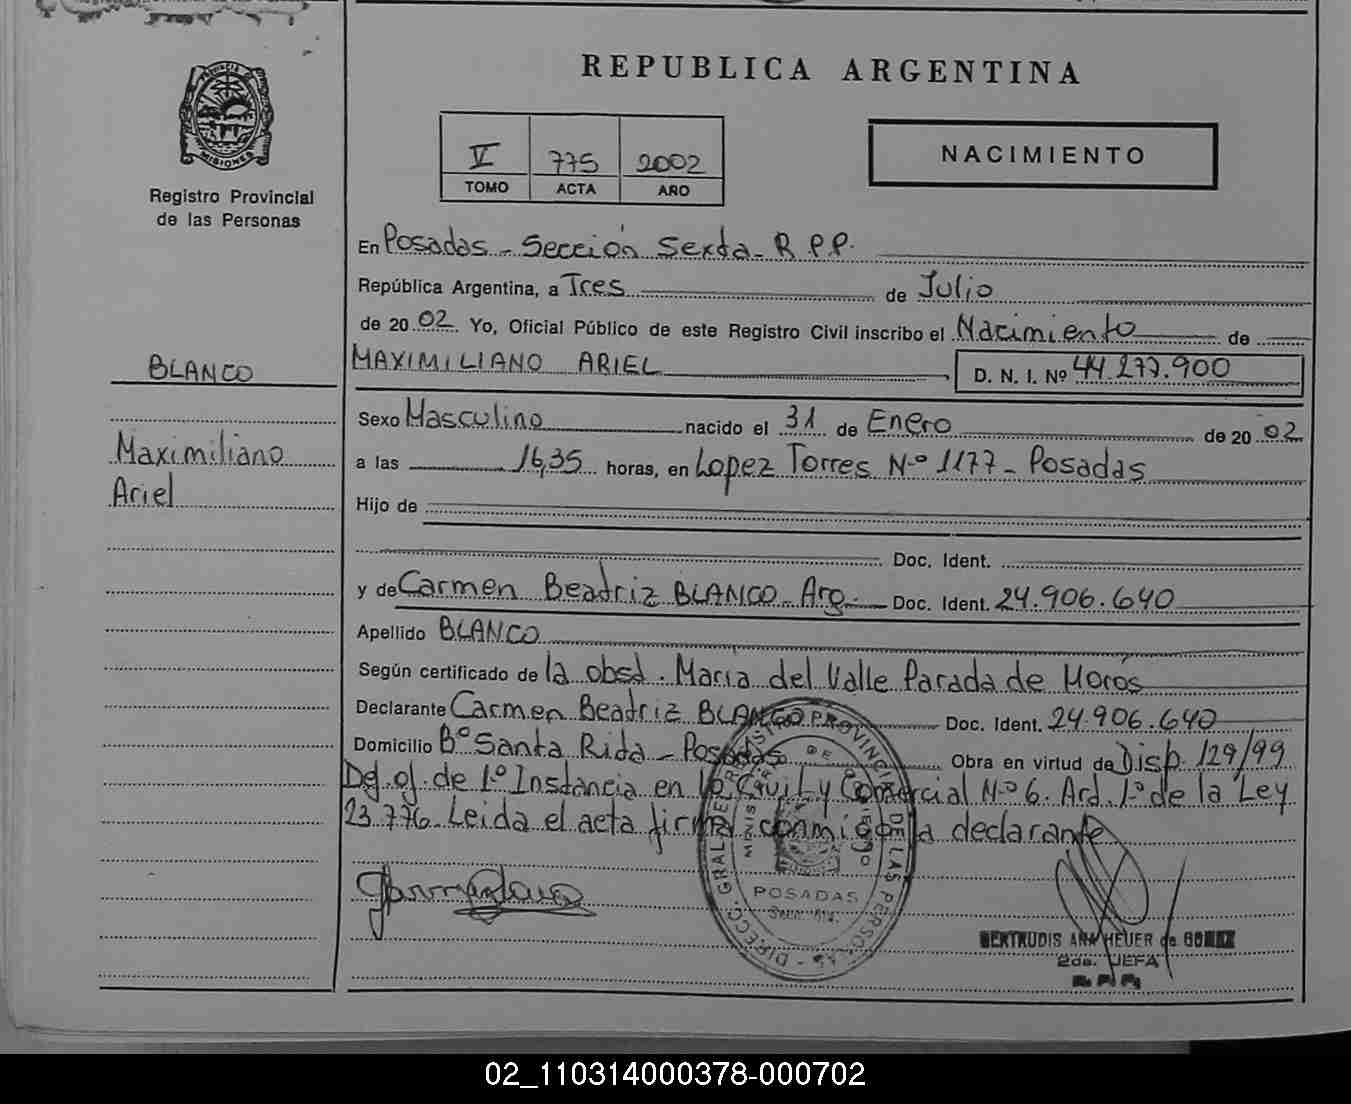 REPUBLICA ARGENTINA
PROVINCIA DE
MISIONES
Registro Provincial
de las Personas
V 775 2002
TOMO ACTA AÑO
NACIMIENTO
En Posadas - Sección Sexta - R.P.P.
República Argentina, a Tres de Julio
de 2002. Yo, Oficial Público de este Registro Civil inscribo el Nacimiento de
MAXIMILIANO ARIEL D. N. I. Nº 44.277.900
BLANCO
Maximiliano
Ariel
Sexo Masculino nacido el 31 de Enero de 2002
a las 16,35 horas, en Lopez Torres Nº 1177 - Posadas
Hijo de
Doc. Ident.
y de Carmen Beatriz BLANCO - Arg. Doc. Ident. 24.906.640
Apellido BLANCO
Según certificado de la obst. Maria del Valle Parada de Morós
Declarante Carmen Beatriz BLANCO Doc. Ident. 24.906.640
Domicilio Bº Santa Rita - Posadas Obra en virtud de Disp. 129/99
Def. of. de 1º Instancia en lo Civil y Comercial Nº 6. Art. 1º de la Ley
23.776. Leida el acta firma conmigo la declarante
DIRECC. GRAL. DE REGISTRO PROVINCIAL DE LAS PERSONAS
POSADAS
GERTRUDIS ANA HEUER de GOMEZ
2da. JEFA
02_110314000378-000702